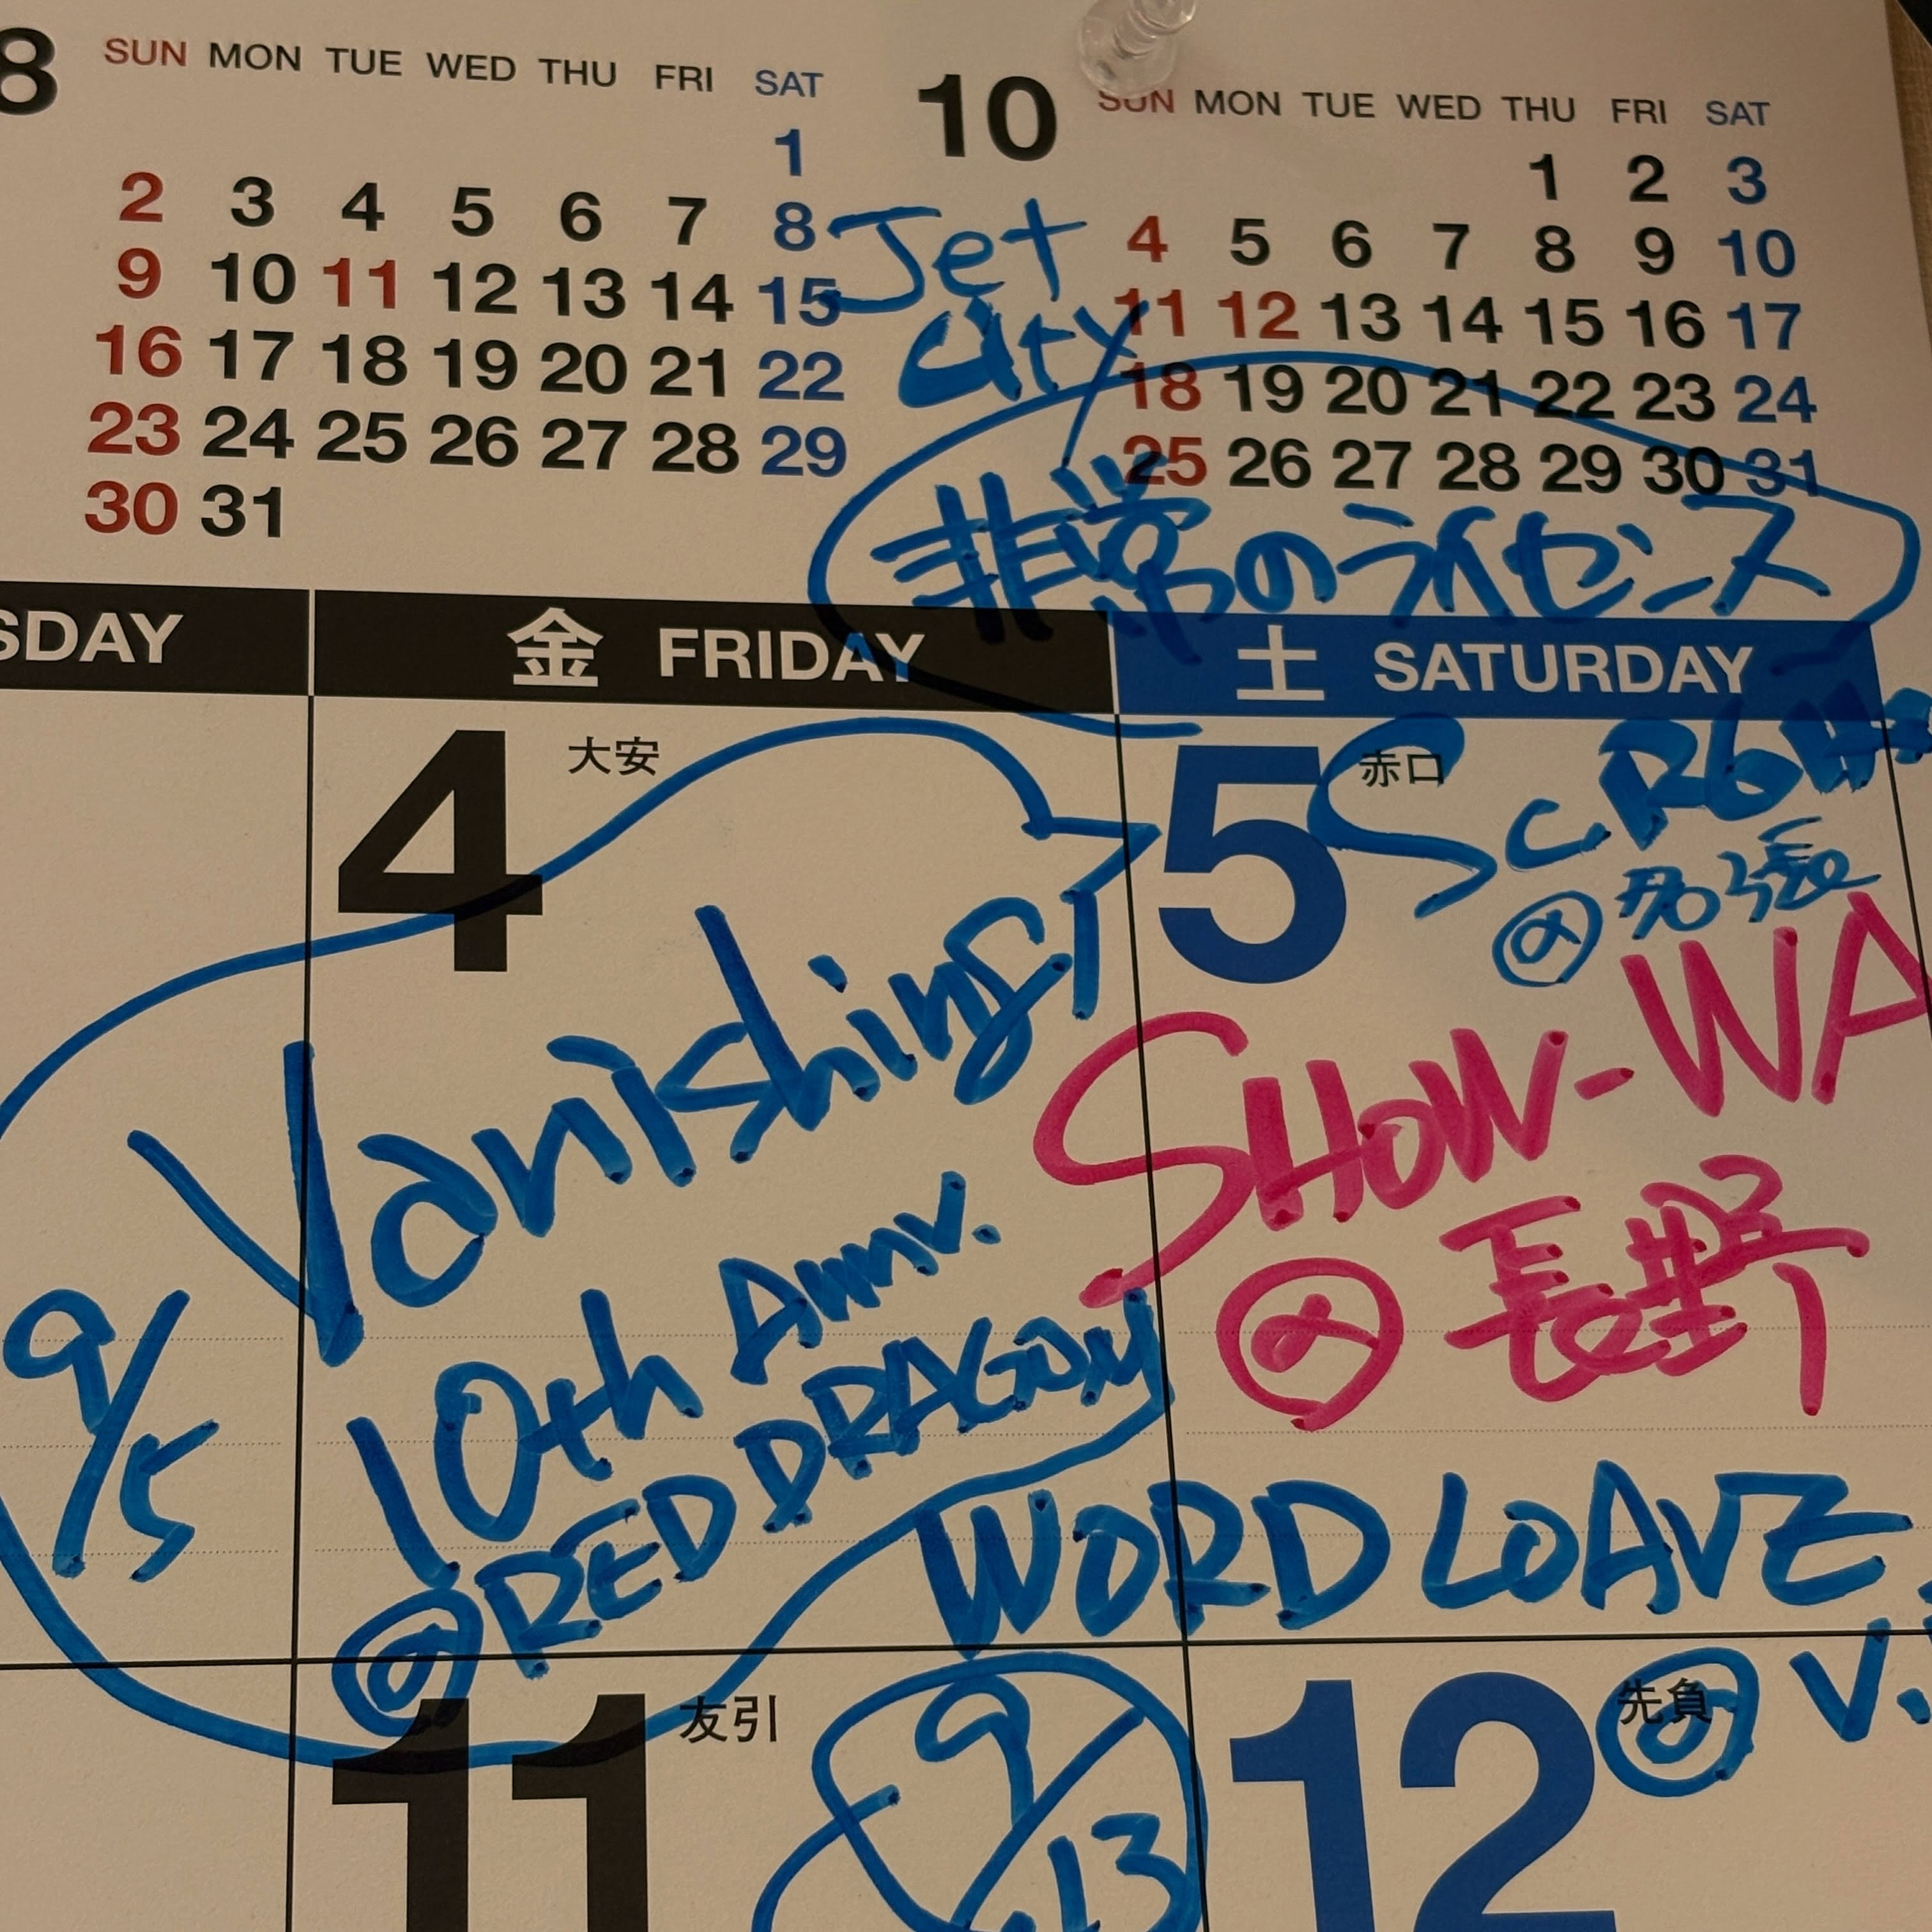 8 SUN MON TUE WED THU FRI SAT
1
2 3 4 5 6 7 8
9 10 11 12 13 14 15
16 17 18 19 20 21 22
23 24 25 26 27 28 29
30 31
10 SUN MON TUE WED THU FRI SAT
1 2 3
4 5 6 7 8 9 10
11 12 13 14 15 16 17
18 19 20 21 22 23 24
25 26 27 28 29 30 31
Jet
City
非常のライセンス
SDAY 金 FRIDAY 土 SATURDAY
4 大安
Vanishing
10th Anniv.
@RED DRAGON
9/5
5 赤口
SHOW-WA
@長野
WORD LOAVE
@ V.
11 友引
9/13
12 先負